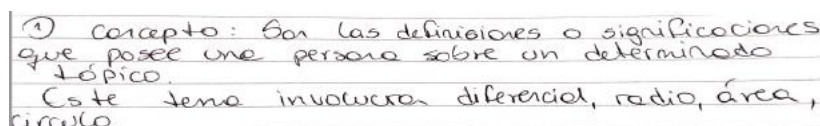 ① concepto: Son las definisiones o significaciones
que posee una persona sobre un determinado
tópico.
Este tema involucra diferencial, radio, área,
circulo